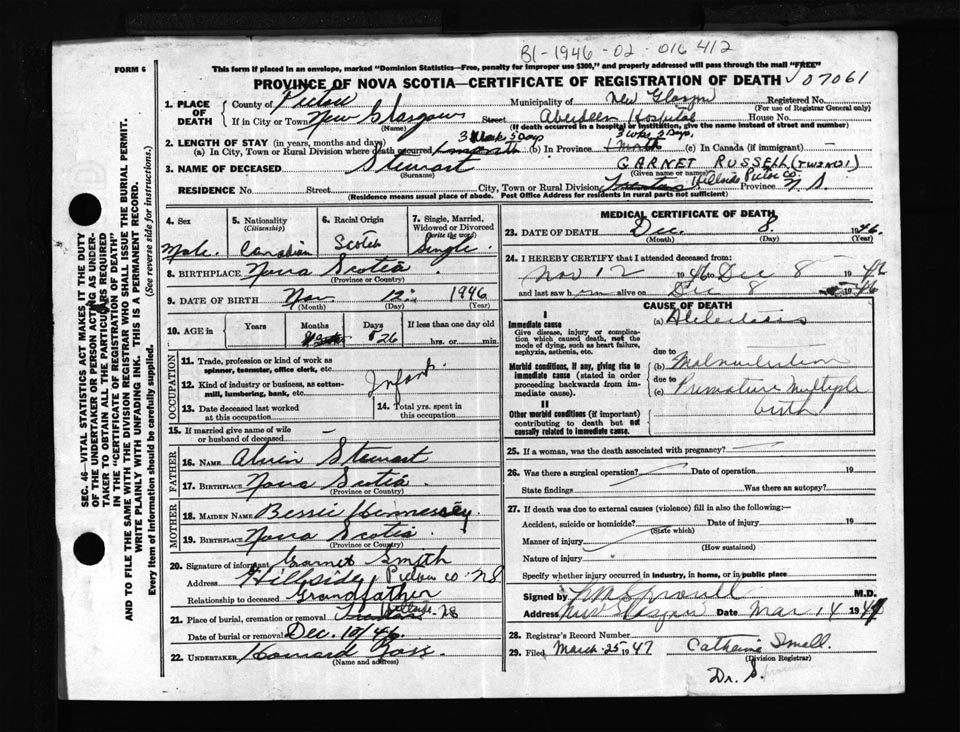 B1-1946-02-016412
FORM 6
This form if placed in an envelope, marked "Dominion Statistics—Free, penalty for improper use $300," and properly addressed will pass through the mail "FREE"
PROVINCE OF NOVA SCOTIA—CERTIFICATE OF REGISTRATION OF DEATH
07061
1. PLACE OF DEATH
County of Pictou Municipality of New Glasgow Registered No.
(For use of Registrar General only)
If in City or Town New Glasgow Street Aberdeen Hospital House No.
(Name) (If death occurred in a hospital or institution, give the name instead of street and number)
3 Weeks 5 Days 3 wks 5 Days
2. LENGTH OF STAY (in years, months and days)
(a) In City, Town or Rural Division where death occurred 1 month (b) In Province 1 month (c) In Canada (if immigrant) —
3. NAME OF DECEASED Stewart GARNET RUSSELL (TWIN #1)
(Surname) (Given name or names)
RESIDENCE No. Street City, Town or Rural Division Hillside Pictou Co. Province N.S.
(Residence means usual place of abode. Post Office Address for residents in rural parts not sufficient)
4. Sex Male
5. Nationality (Citizenship) Canadian
6. Racial Origin Scotch
7. Single, Married, Widowed or Divorced (write the word) Single
8. BIRTHPLACE Nova Scotia
(Province or Country)
9. DATE OF BIRTH Nov 12 1946
(Month) (Day) (Year)
10. AGE in Years Months Days 26 If less than one day old
hrs. or min.
OCCUPATION
11. Trade, profession or kind of work as spinner, teamster, office clerk, etc.
12. Kind of industry or business, as cotton-mill, lumbering, bank, etc.
Infant
13. Date deceased last worked at this occupation
14. Total yrs. spent in this occupation
15. If married give name of wife or husband of deceased —
FATHER
16. NAME Alvin Stewart
17. BIRTHPLACE Nova Scotia
(Province or Country)
MOTHER
18. MAIDEN NAME Bessie Hennessey
19. BIRTHPLACE Nova Scotia
(Province or Country)
20. Signature of informant Garnet Smith
Address Hillside, Pictou Co NS
Relationship to deceased Grandfather
21. Place of burial, cremation or removal Hillside. NS
Date of burial or removal Dec. 10/46.
22. UNDERTAKER Howard Ross
(Name and address)
MEDICAL CERTIFICATE OF DEATH
23. DATE OF DEATH Dec. 8. 1946.
(Month) (Day) (Year)
24. I HEREBY CERTIFY that I attended deceased from:
Nov 12 1946 to Dec 8 1946
and last saw him alive on Dec 8 1946
CAUSE OF DEATH
I
Immediate cause
Give disease, injury or complication which caused death, not the mode of dying, such as heart failure, asphyxia, asthenia, etc.
(a) Atelectasis
due to
Morbid conditions, if any, giving rise to immediate cause (stated in order proceeding backwards from immediate cause).
(b) Malnutrition
due to
(c) Premature multiple birth
II
Other morbid conditions (if important) contributing to death but not causally related to immediate cause.
25. If a woman, was the death associated with pregnancy?
26. Was there a surgical operation? Date of operation 19
State findings Was there an autopsy?
27. If death was due to external causes (violence) fill in also the following:—
Accident, suicide or homicide? Date of injury 19
(State which)
Manner of injury
(How sustained)
Nature of injury
Specify whether injury occurred in industry, in home, or in public place
Signed by M.D.
Address New Glasgow Date Mar 14 1947
28. Registrar's Record Number
29. Filed March-25 1947 Catherine Small.
(Division Registrar)
Dr. S.
SEC. 46—VITAL STATISTICS ACT MAKES IT THE DUTY
OF THE UNDERTAKER OR PERSON ACTING AS UNDER-
TAKER TO OBTAIN ALL THE PARTICULARS REQUIRED
IN THE "CERTIFICATE OF REGISTRATION OF DEATH"
AND TO FILE THE SAME WITH THE DIVISION REGISTRAR WHO SHALL ISSUE THE BURIAL PERMIT.
WRITE PLAINLY WITH UNFADING INK. THIS IS A PERMANENT RECORD.
Every item of Information should be carefully supplied. (See reverse side for instructions.)